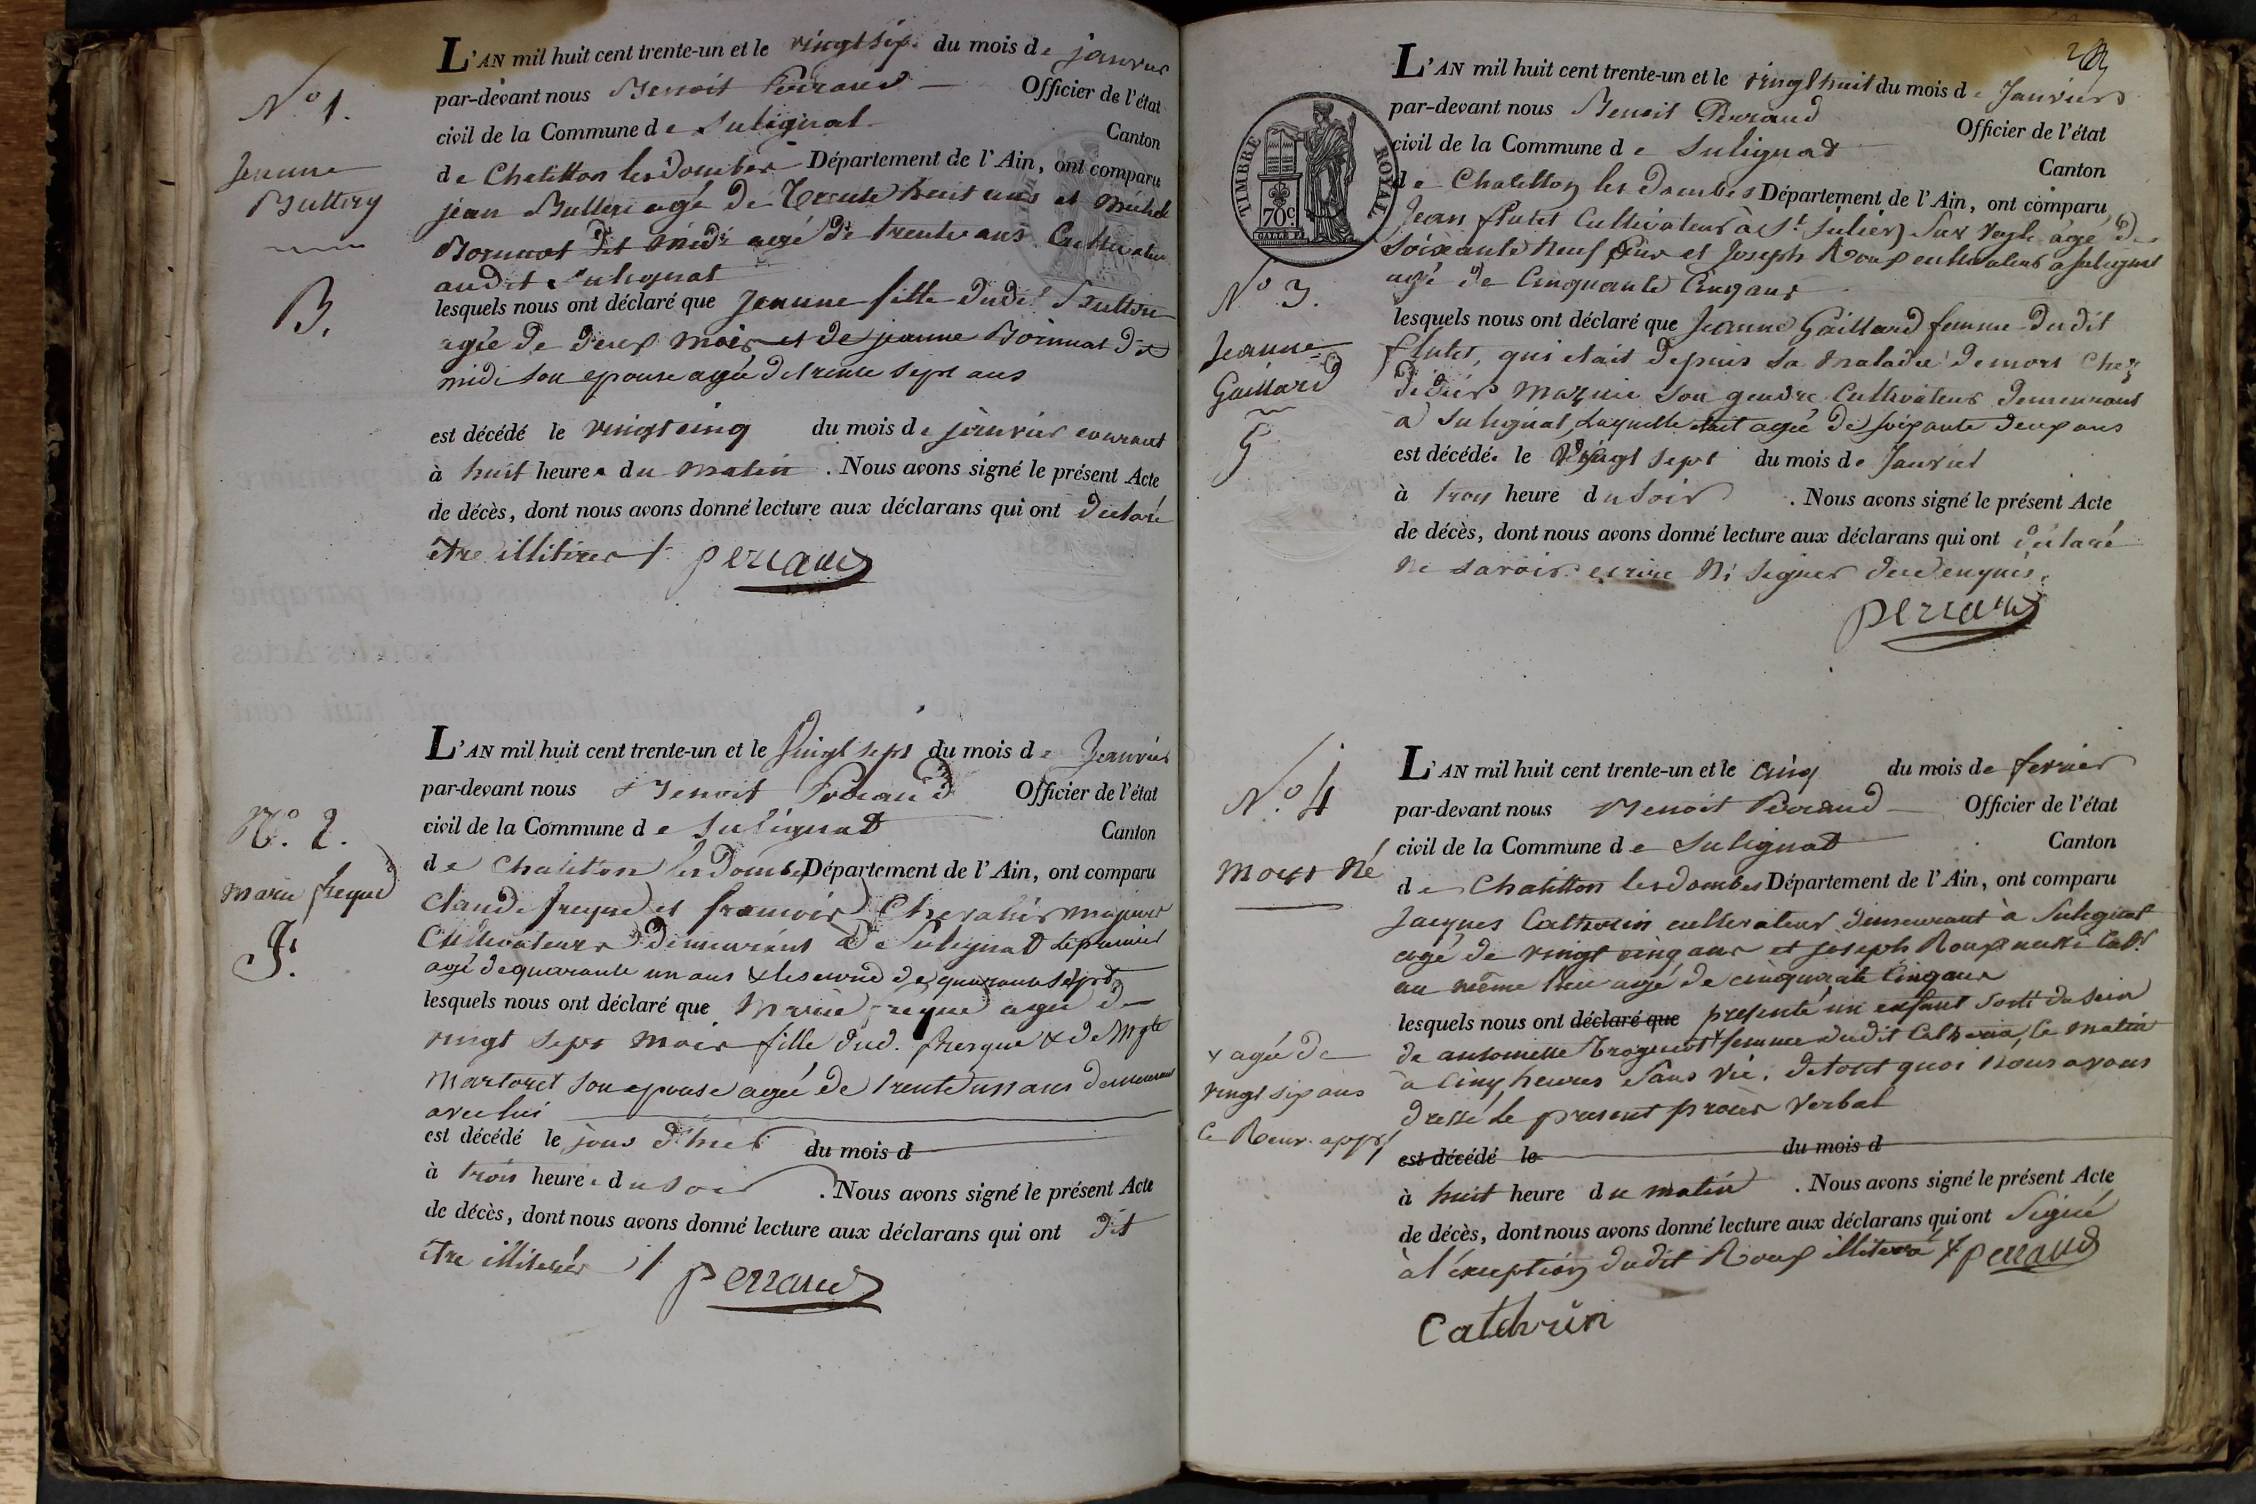 N.o 1.
Jeanne
Buttery
B.
L'AN mil huit cent trente-un et le vingt six du mois de janvier
par-devant nous Benoit Perraud Officier de l'état
civil de la Commune de Sulignat Canton
de Chatillon les Dombes Département de l'Ain, ont comparu
jean Butteri agé de trente huit ans et Michel
dit midi agé de trente ans Cultivateurs
audit Sulignat
lesquels nous ont déclaré que Jeanne fille dudit Butteri
agée de deux mois et de jeanne dit
midi son epouse agée de trente sept ans
est décédé le vingt cinq du mois de janvier courant
à huit heures du matin . Nous avons signé le présent Acte
de décès, dont nous avons donné lecture aux déclarans qui ont declaré
être illitérés /. perraud
N.o 2.
Marie freque
F.
L'AN mil huit cent trente-un et le vingt sept du mois de Janvier
par-devant nous Benoit Perraud Officier de l'état
civil de la Commune de Sulignat Canton
de Chatillon les Dombes Département de l'Ain, ont comparu
Claude freque et francois Chevalier majeurs
Cultivateurs demeurant à de Sulignat le premier
agé de quarante un ans & le second de quarante sept
lesquels nous ont déclaré que Marie freque agée de
vingt sept mois fille dud. fresque & de Mgte
Martoret son epouse agée de trente un ans demeurant
avec lui
est décédé le jour d'hier du mois d
à trois heures du soir . Nous avons signé le présent Acte
de décès, dont nous avons donné lecture aux déclarans qui ont dit
être illitérés ./ perraud
TIMBRE ROYAL
70c.
N.o 3.
Jeanne
Gaillard
G
L'AN mil huit cent trente-un et le vingt huit du mois de Janvier
par-devant nous Benoit Perraud Officier de l'état
civil de la Commune de Sulignat Canton
de Chatillon les dombes Département de l'Ain, ont comparu
Jean flutet Cultivateur à St. Julien Sur Veyle âgé de
Soixante Neuf ans et Joseph Roux cultivateur à Sulignat
agé de Cinquante Cinq ans
lesquels nous ont déclaré que Jeanne Gaillard femme dudit
flutet, qui etait depuis sa maladie de mort chez
didier Mazuir son gendre Cultivateur demeurant
à Sulignat, Laquelle etait agée de soixante deux ans
est décédée le Vingt sept du mois de Janvier
à trois heure du soir . Nous avons signé le présent Acte
de décès, dont nous avons donné lecture aux déclarans qui ont déclaré
ne savoir ecrire Ni Signer de ce enquis.
perraud
N.o 4
Mort Né
x agée de
vingt six ans
L'AN mil huit cent trente-un et le cinq du mois de fevrier
par-devant nous Benoit Perraud Officier de l'état
civil de la Commune de Sulignat Canton
de Chatillon les dombes Département de l'Ain, ont comparu
Jacques Catherin cultivateur demeurant à Sulignat
agé de vingt cinq ans et joseph Roux aussi Cultr
au même lieu agé de cinquante Cinq ans
lesquels nous ont déclaré que presenté un enfant sorti du sein
de antoinette x femme dudit Catherin, le matin
à Cinq heures Sans vie. de tout quoi Nous avons
dressé le present procès Verbal
est décédé le du mois d
à huit heure du matin . Nous avons signé le présent Acte
de décès, dont nous avons donné lecture aux déclarans qui ont Signé
à l'éxception dudit Roux illiteré /. perraud
Catehrin